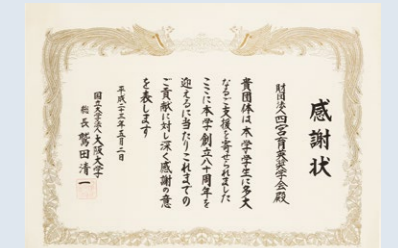 感謝状
財団法人四宮育英奨学会殿
貴団体は本学学生に多大
なるご支援を寄せられました
ここに本学創立八十周年を
迎えるに当たりこれまでの
ご貢献に対し深く感謝の意
を表します
平成二十三年五月二日
国立大学法人大阪大学
総長 鷲田清一